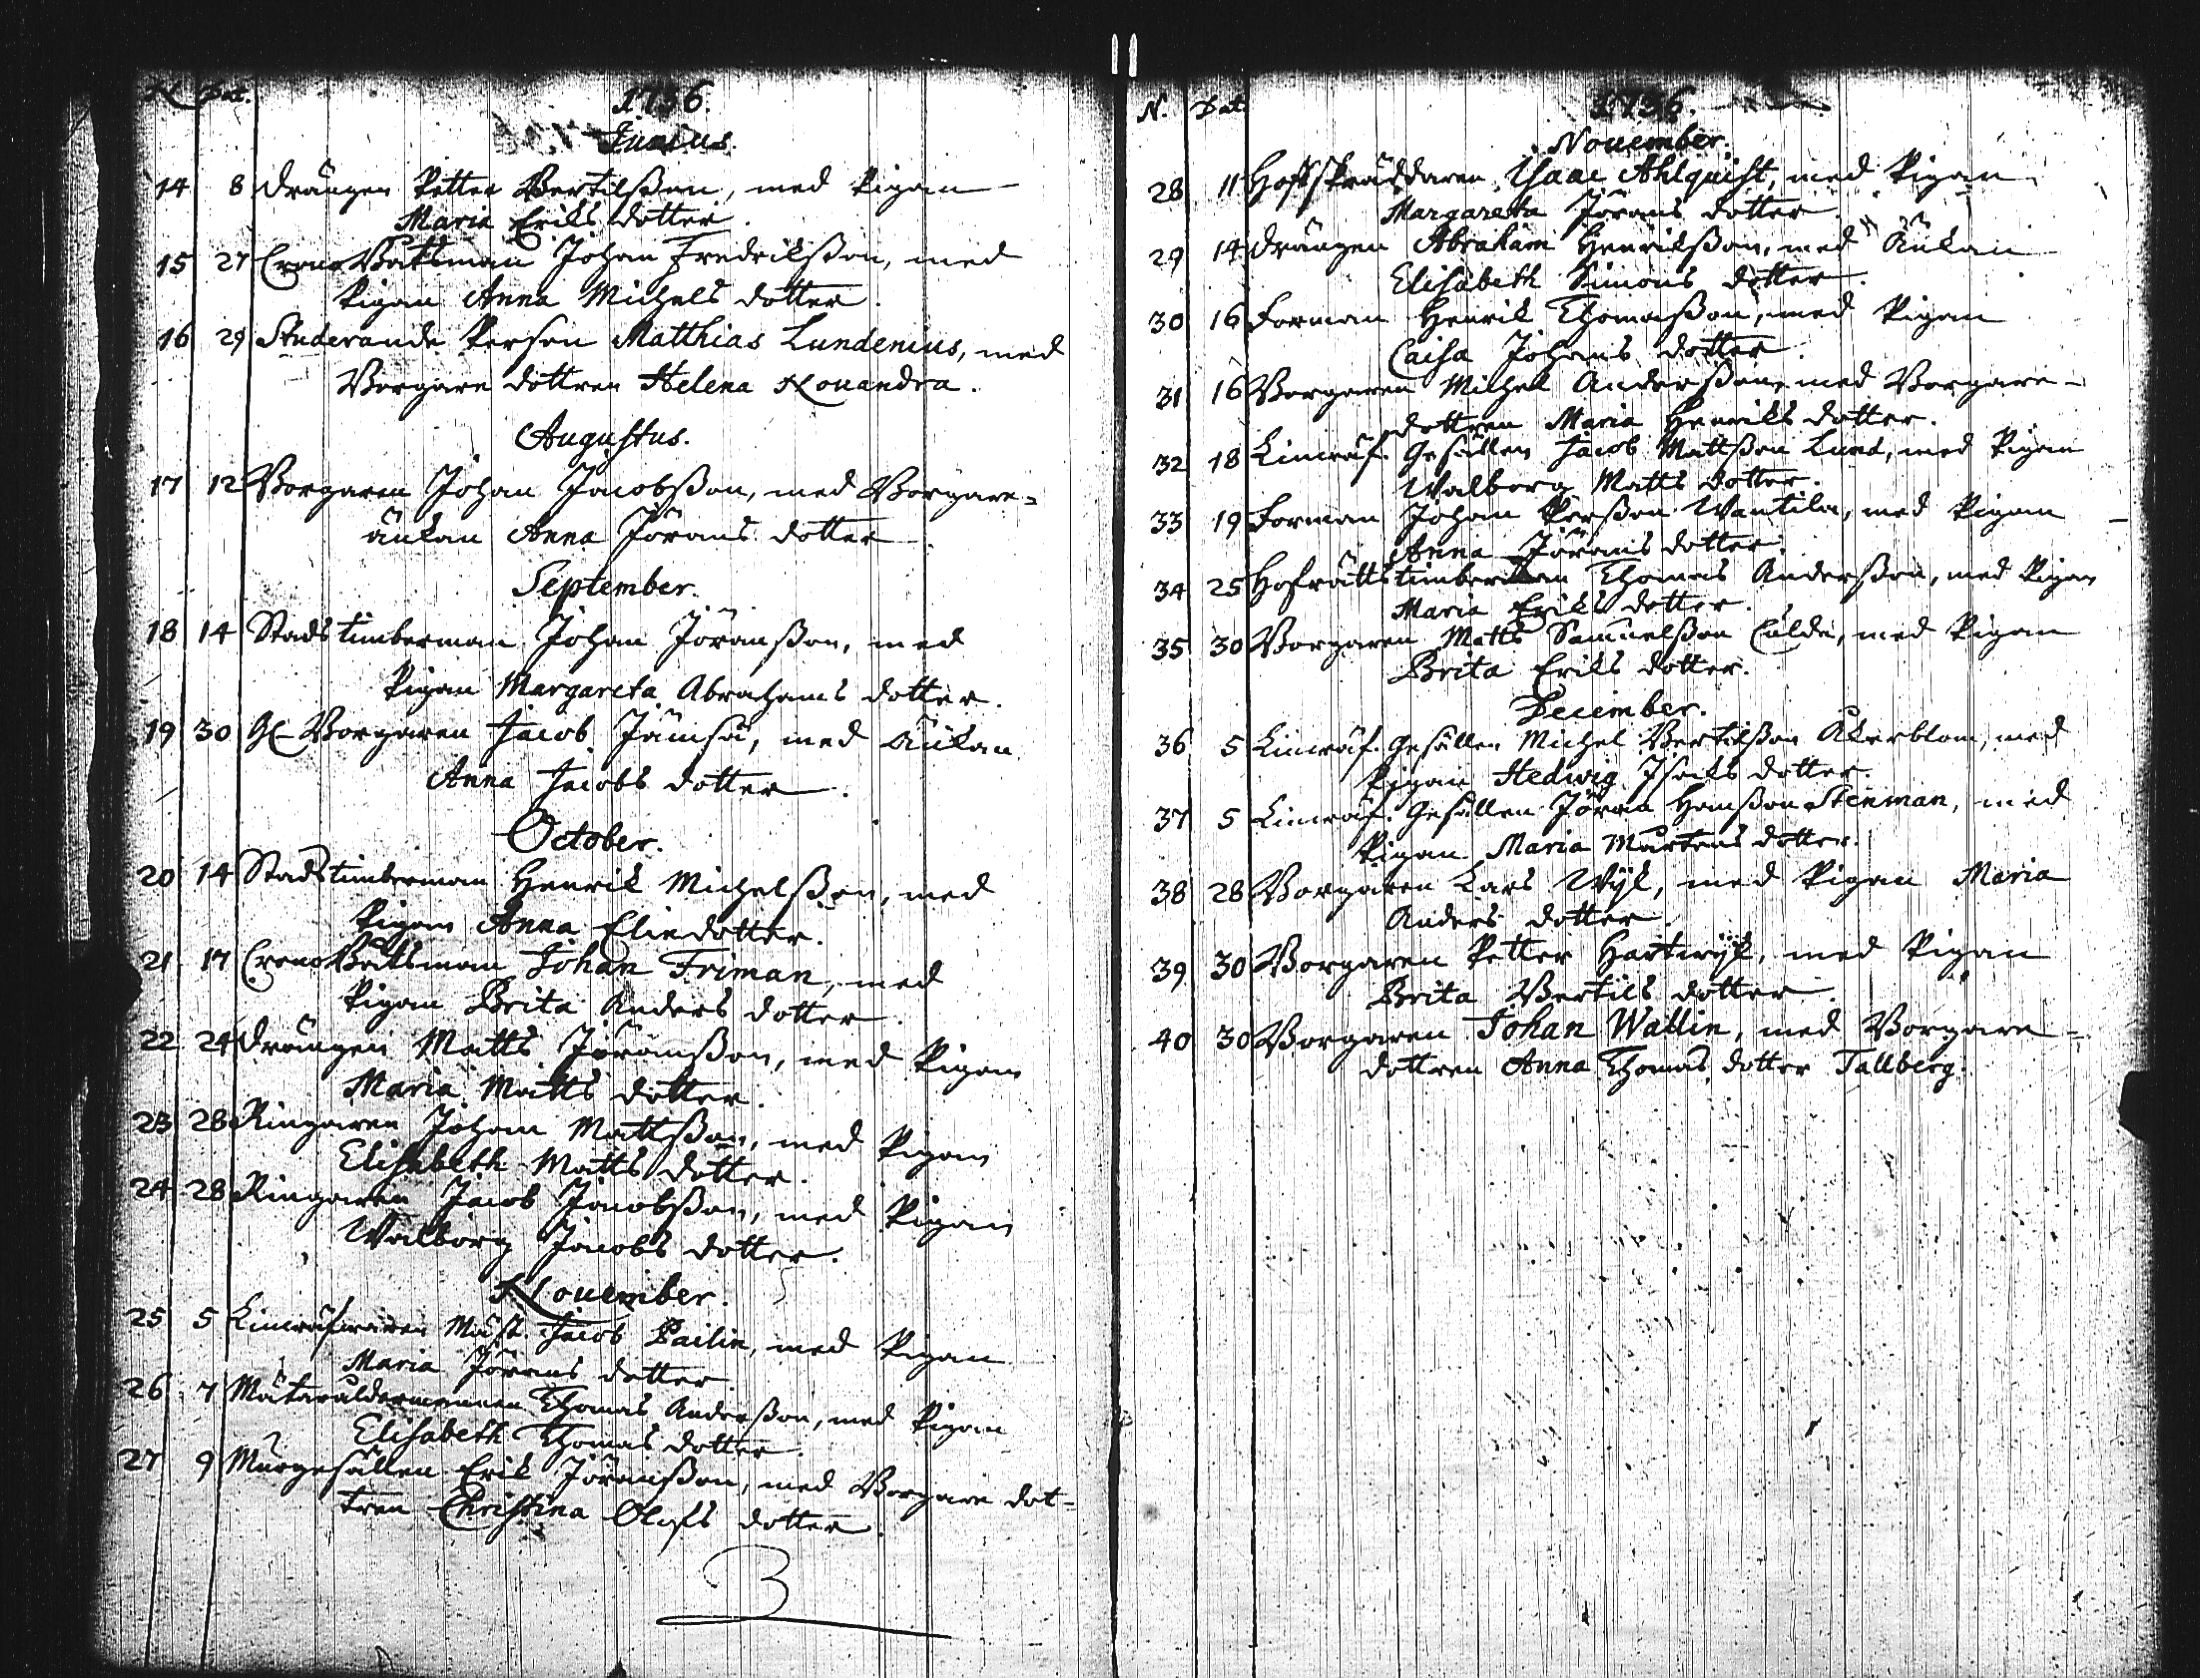 N Dat.
1736.
Junius.
14 8 Drängen Petter Bertilßon, med Pigan
Maria Eriks dotter.
15 27 Crono Båtsman Johan Fredrikßon, med
Pigan Anna Michels dotter.
16 29 Studerande Person Matthias Lundenius, med
Borgare dottren Helena Nouandra.
Augustus.
17 12 Borgaren Johan Jacobßon, med Borgare=
änkan Anna Jörans dotter.
September.
18 14 Stads timberman Johan Joranßon, med
Pigan Margareta Abrahams dotter.
19 30 Gl Borgaren Jacob Jämsä, med Änkan
Anna Jacobs dotter.
October.
20 14 Stadstimberman Henrik Michelßon, med
Pigan Anna Eliedotter.
21 17 Crono Båtsman Johan Friman, med
Pigan Brita Anders dotter.
22 24 Drängen Matts Jöranßon, med Pigan
Maria Matts dotter.
23 28 Ringaren Johan Mattßon, med Pigan
Elisabeth Matts dotter.
24 28 Ringaren Jacob Jacobßon, med Pigan
Walborg Jacobs dotter.
Nouember.
25 5 Linwäfwaren Mäst. Jacob Pailin, med Pigan
Maria Jörans dotter.
26 7 Mätaråldermannen Thomas Anderßon, med Pigan
Elisabeth Thomas dotter.
27 9 Murgesällen Erik Jöranßon, med Borgare dot=
tren Christina Olofs dotter.
N. Dat
1736.
Nouember.
28 11 Hofskräddaren Isaac Ahlquist, med Pigan
Margareta Jörans dotter.
29 14 Drängen Abraham Henrikßon, med Änkan
Elisabeth Simons dotter.
30 16 Forman Henrik Thomaßon, med Pigan
Caisa Johans dotter.
31 16 Borgaren Michel Anderßon, med Borgare-
dottren Maria Henriks dotter.
32 18 Linwäf. Gesällen Jacob Mattßon Lund, med Pigan
Walborg Matts dotter.
33 19 Forman Johan Perßon Wantila, med Pigan
Anna Jörans dotter.
34 25 Hofrätts timberman Thomas Anderßon, med Pigan
Maria Eriks dotter.
35 30 Borgaren Matts Samuelßon, med Pigan
Brita Eriks dotter.
December.
36 5 Linwäf. Gesällen Michel Bertilßon Åkerblom, med
Pigan Hedwig Isaks dotter.
37 5 Linwäf. Gesällen Jöran Hanßon Stenman, med
Pigan Maria Mårtens dotter.
38 28 Borgaren Lars Wijk, med Pigan Maria
Anders dotter.
39 30 Borgaren Petter Hartwijk, med Pigan
Brita Bertils dotter.
40 30 Borgaren Johan Wallin, med Borgare=
dottren Anna Thomas dotter Tallberg.